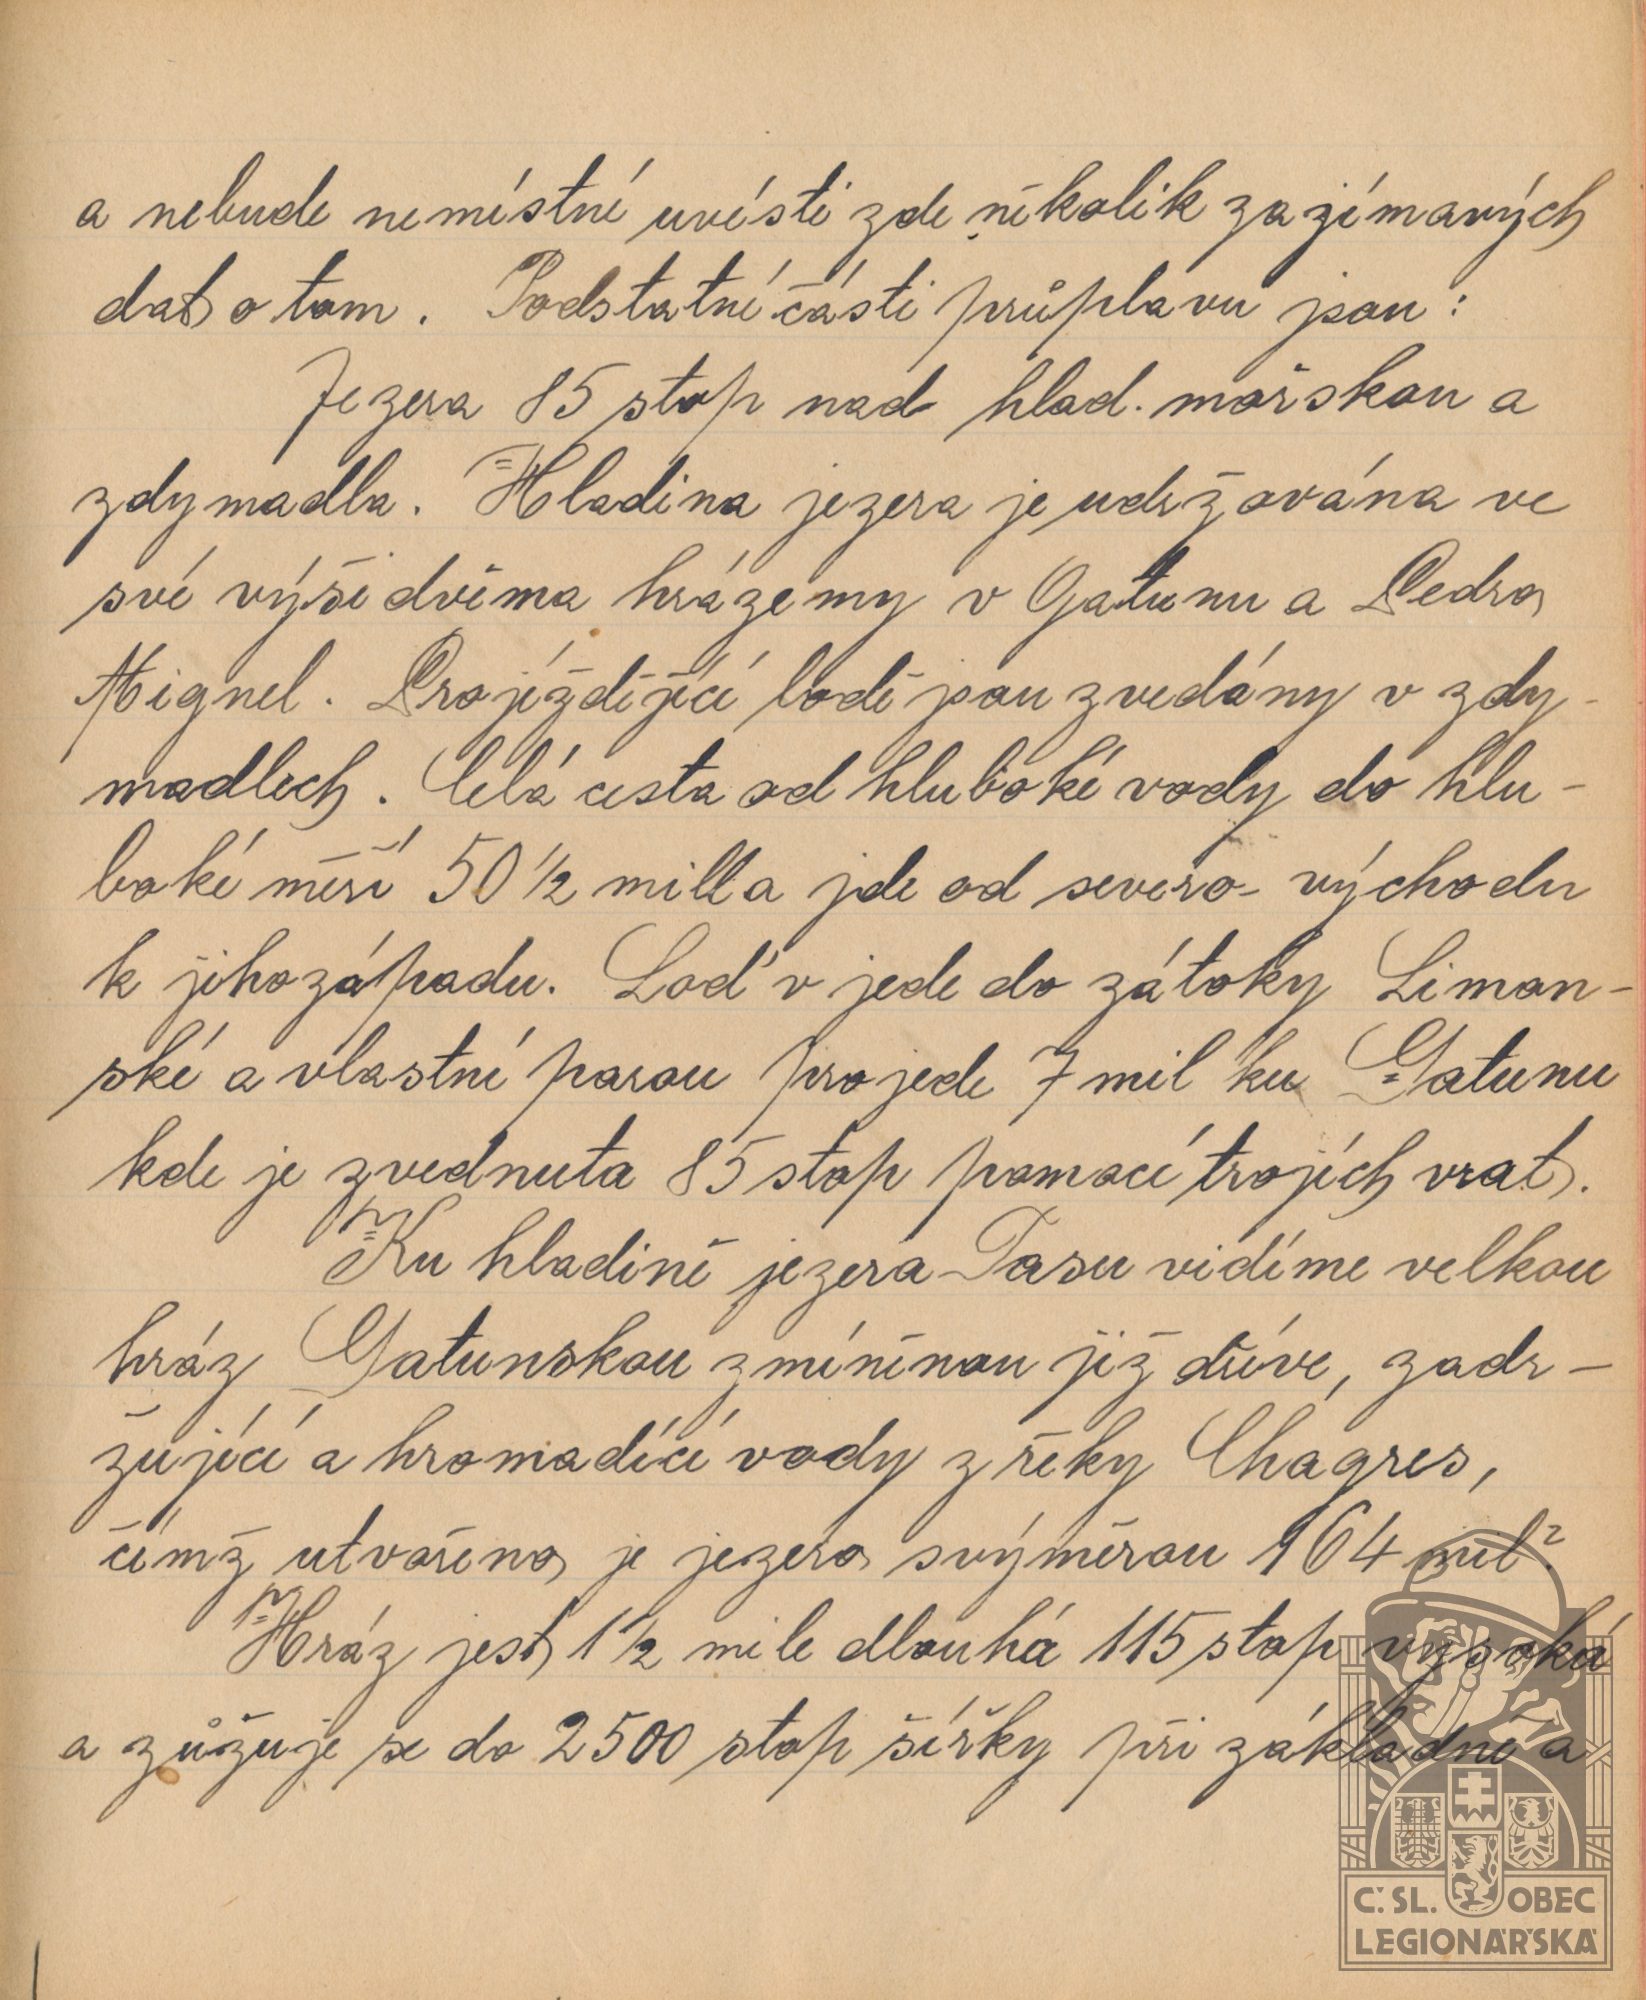 a nebude nemístné uvésti zde několik zajímavých
dat o tom. Podstatné části průplavu jsou:
Jezera 85 stop nad hlad. mořskou a
zdymadla. Hladina jezera je udržována ve
své výši dvěma hrázemy v Gatunu a Pedro
Mignel. Projíždějící lodě jsou zvedány v zdy-
madlech. Celá cesta od hluboké vody do hlu-
boké měří 50 1/2 mill a jde od severo-východu
k jihozápadu. Loď v jede do zátoky Limon-
ské a vlastní parou projede 7 mil ku Gatunu
kde je zvednuta 85 stop pomocí trojích vrat.
Ku hladině jezera Tasu vidíme velkou
hráz Gatunskou zmíněnou již dříve, zadr-
žující a hromadící vody z řeky Chagres,
čímž utvořeno je jezero svýměrou 164 mil².
Hráz jest 1 1/2 mile dlouhá 115 stop vysoká
a zůžuje se do 2500 stop šířky při základně a
Č. SL. OBEC
LEGIONÁŘSKÁ